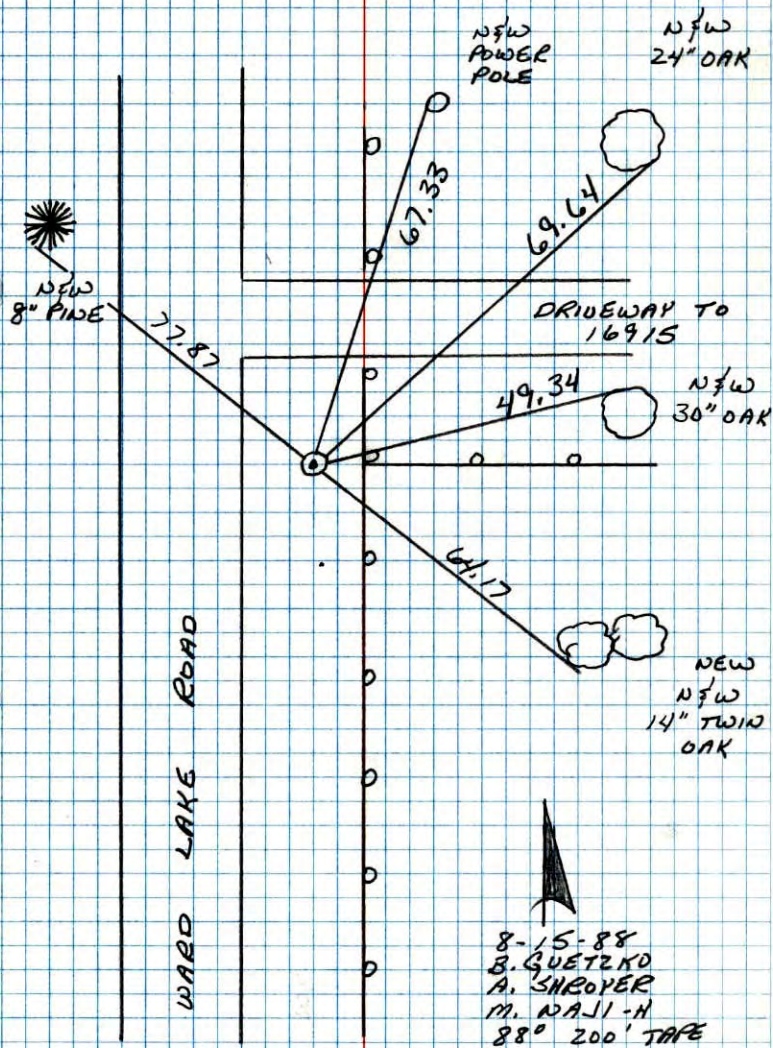 N&W
POWER
POLE
N&W
24" OAK
67.33
69.64
N&W
8" PINE
77.87
DRIVEWAY TO
16915
49.34
N&W
30" OAK
64.17
NEW
N&W
14" TWIN
OAK
WARD LAKE ROAD
8-15-88
B. GUETZKO
A. SHROYER
M. NAJI-H
88° 200' TAPE